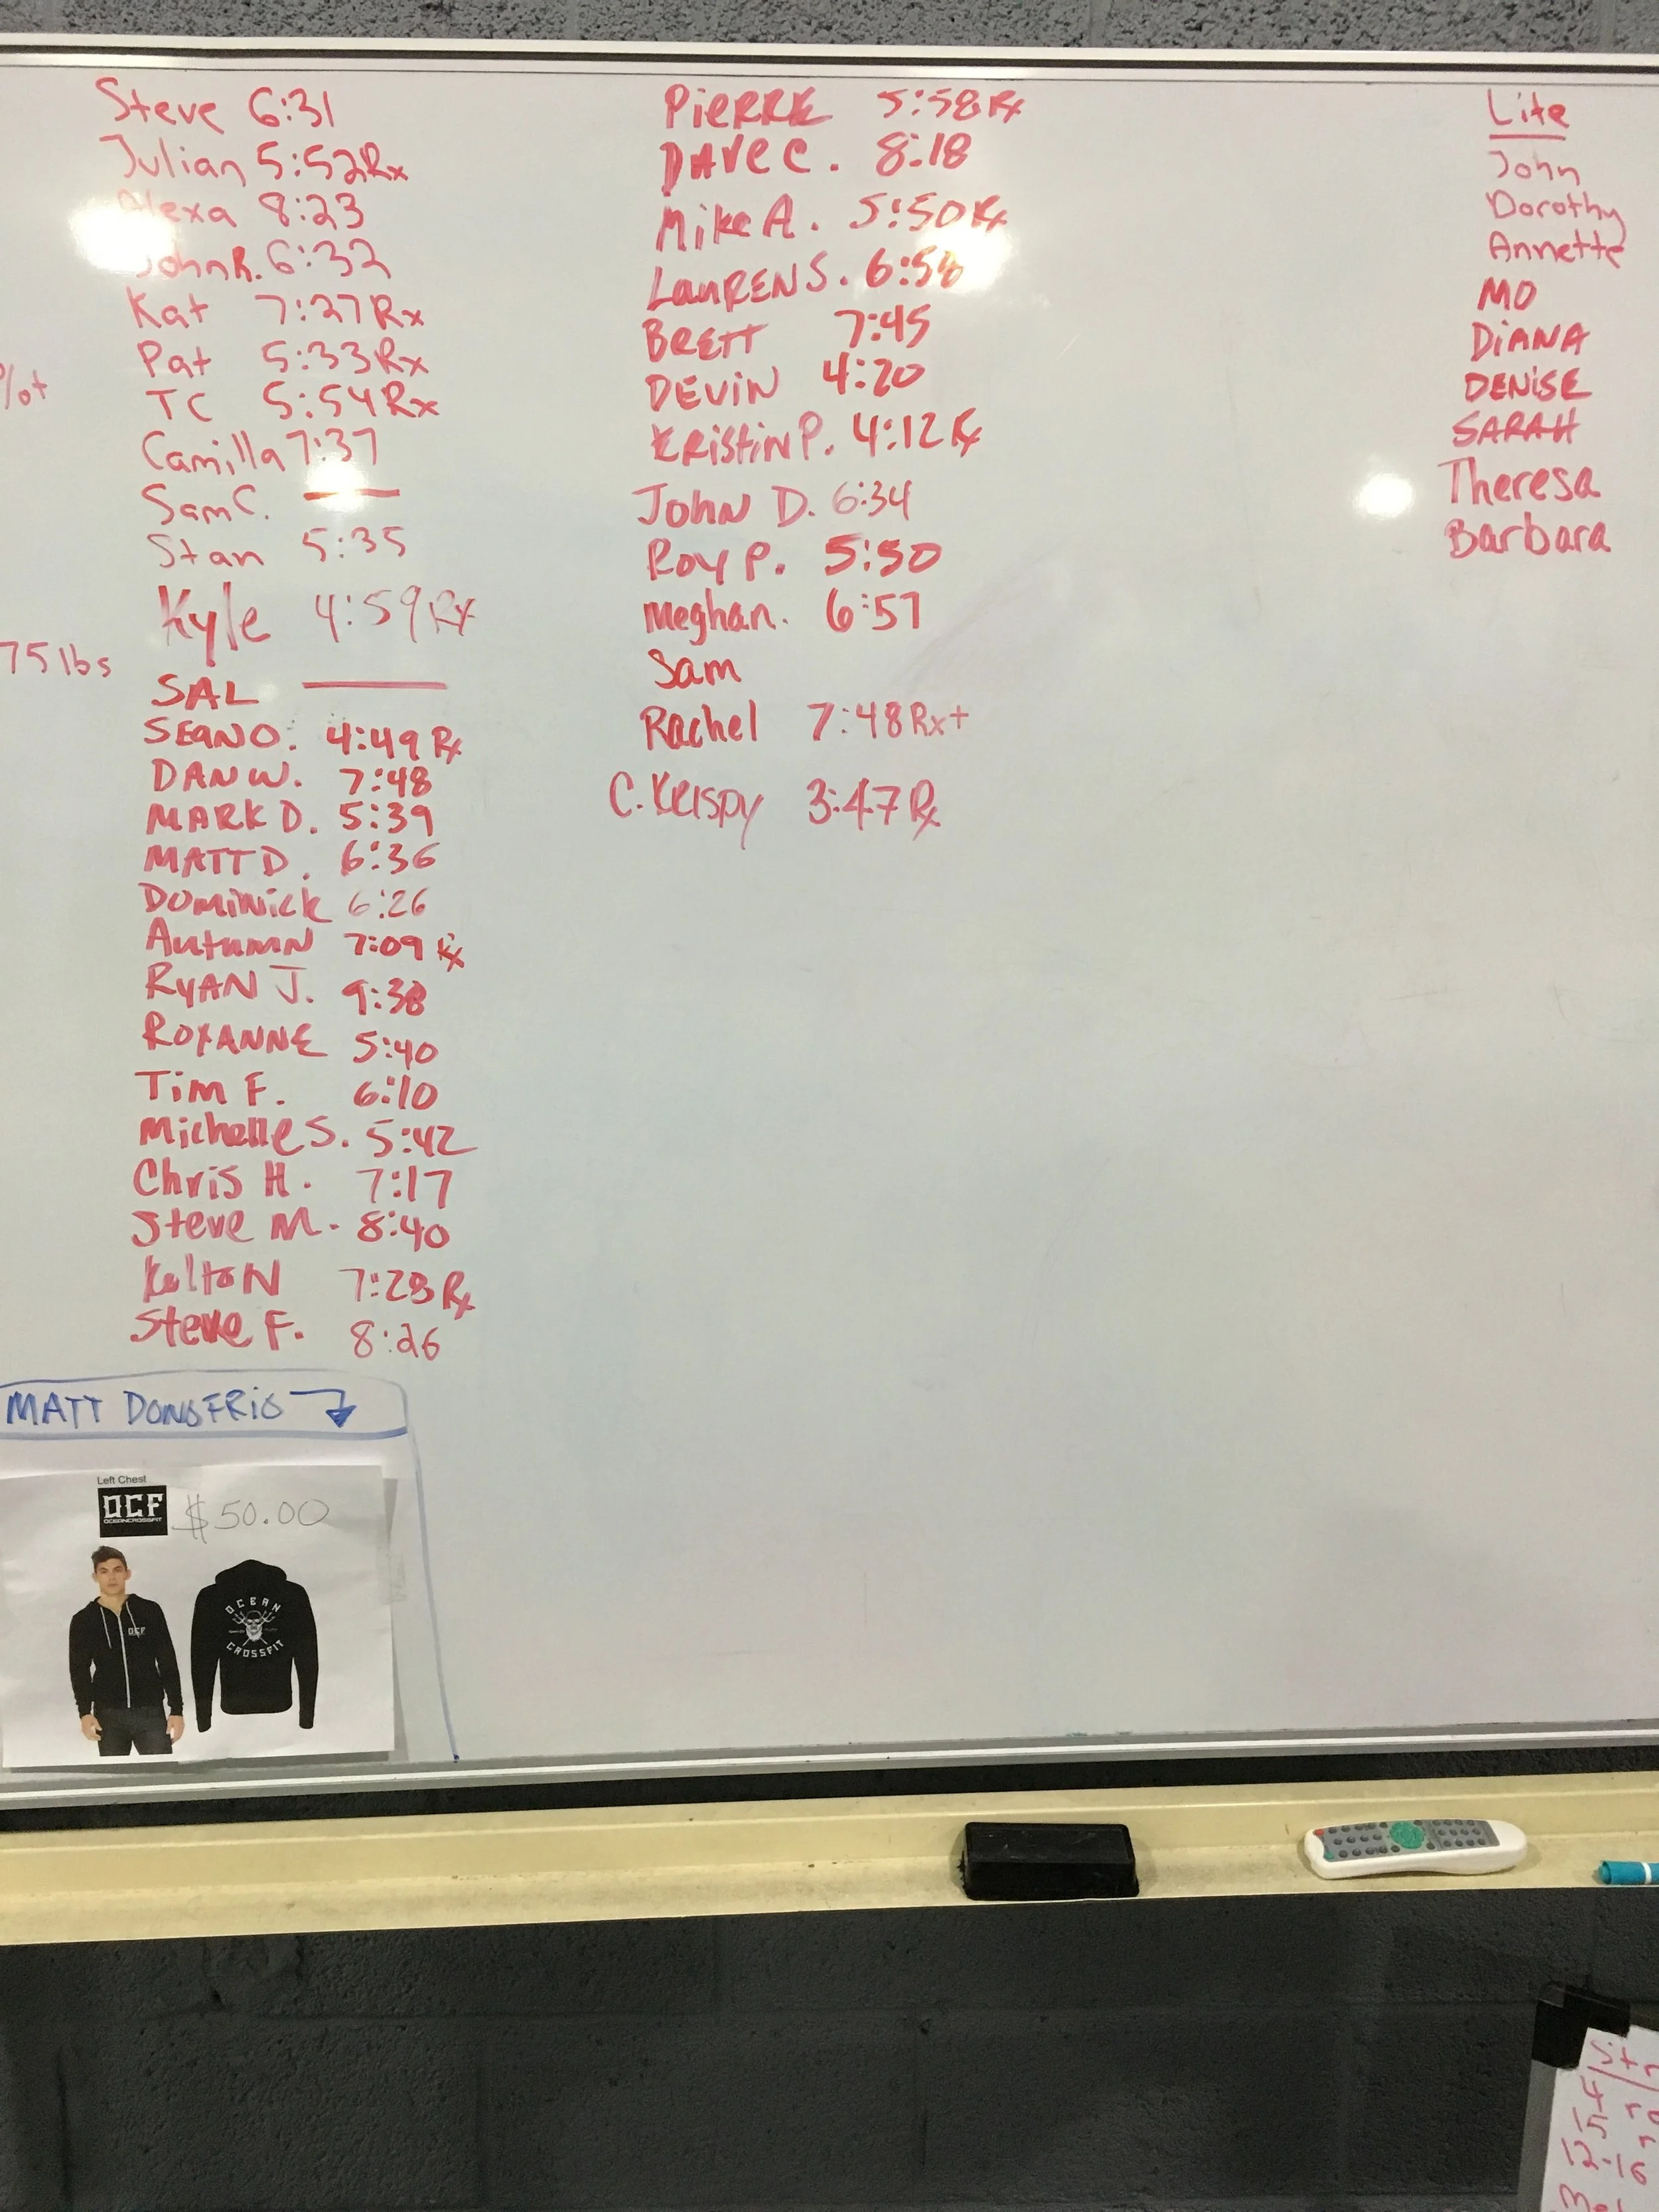 Steve 6:31
Julian 5:52 Rx
Alexa 8:23
John R. 6:32
Kat 7:27 Rx
Pat 5:33 Rx
TC 5:54 Rx
Camilla 7:37
Sam C.
Stan 5:35
Kyle 4:59 Rx
75 lbs
SAL
SEAN O. 4:49 Rx
DAN W. 7:48
MARK D. 5:39
MATT D. 6:36
DOMINICK 6:26
Autumn 7:09 Rx
RYAN J. 9:38
ROXANNE 5:40
Tim F. 6:10
Michelle S. 5:42
Chris H. 7:17
Steve M. 8:40
KeltoN 7:28 Rx
Steve F. 8:26
PIERRE 5:58 Rx
DAVE C. 8:18
Mike A. 5:50 Rx
LAUREN S. 6:58
BRETT 7:45
DEVIN 4:20
KRISTIN P. 4:12 Rx
JOHN D. 6:34
ROY P. 5:50
Meghan. 6:57
Sam
Rachel 7:48 Rx+
C. KRISPY 3:47 Rx
Lite
John
Dorothy
Annette
MO
DIANA
DENISE
SARAH
Theresa
Barbara
MATT DONOFRIO
Left Chest
OCF
OCEANCROSSFIT
$50.00
OCF
OCEAN
CROSSFIT
15
12-16